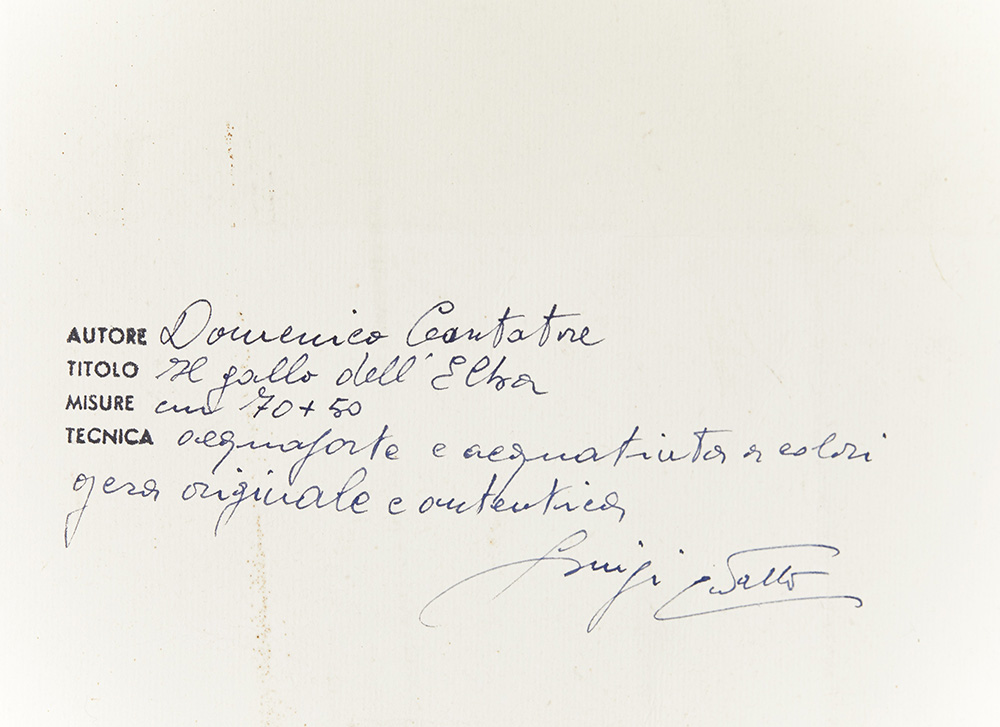 AUTORE Domenico Cantatore
TITOLO Il gallo dell'Elba
MISURE cm 70+50
TECNICA acquaforte e acquatinta a colori
opera originale e autentica
Luigi